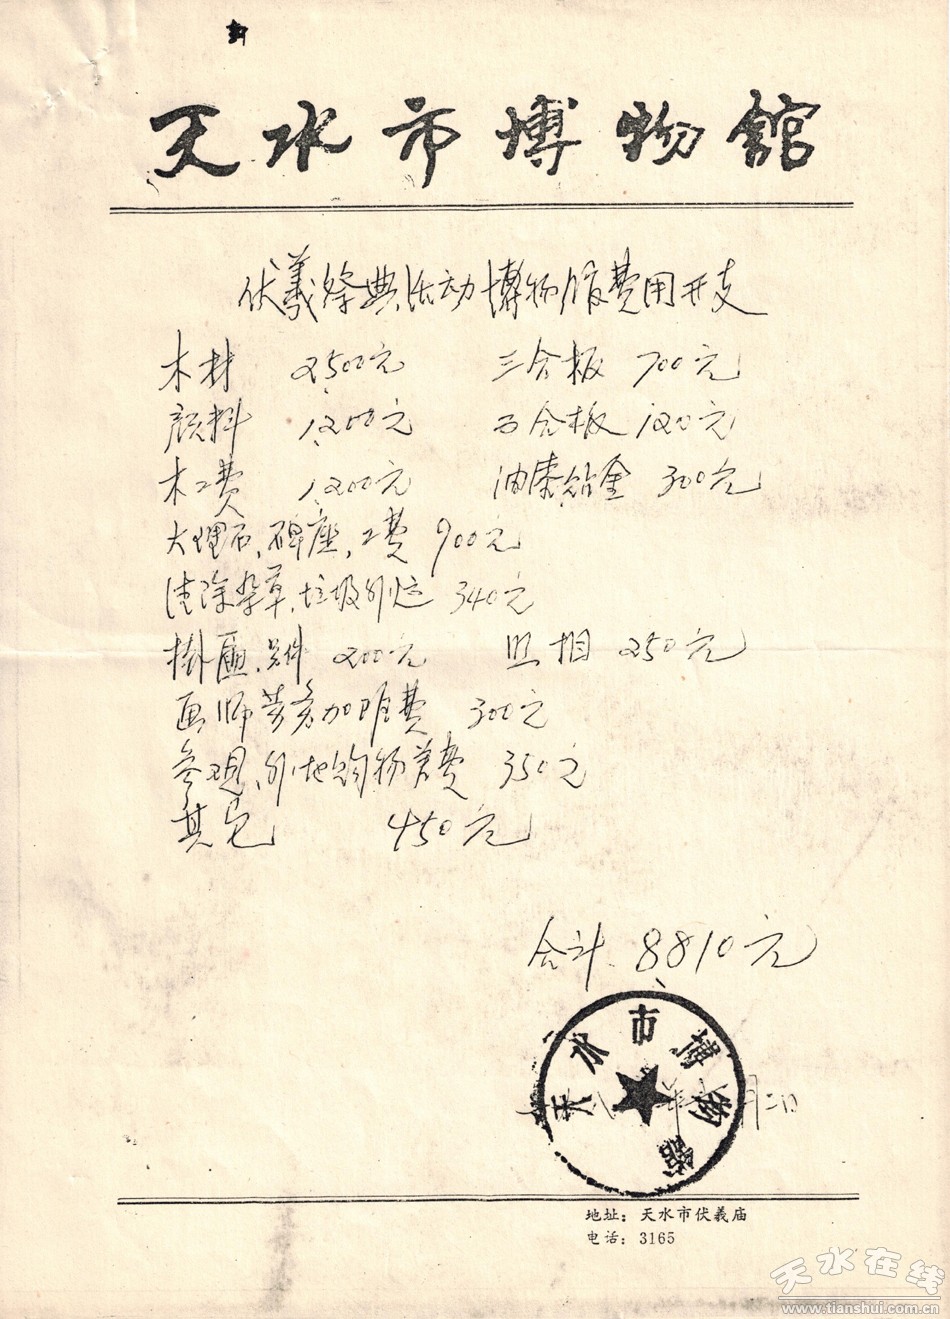 天水市博物館
伏羲祭典活动博物馆费用开支
木材 2500元 三合板 700元
颜料 1,200元 五合板 120元
木工费 1,200元 油漆铂金 300元
大理石、碑座、工费 900元
清除杂草、垃圾外运 340元
掛匾、另件 200元 照相 250元
画师劳务加班费 300元
参观、外地购物差费 350元
其它 450元
合计 8810元
天水市博物館
年 月二日
地址：天水市伏羲庙
电话：3165
天水在线
www.tianshui.com.cn